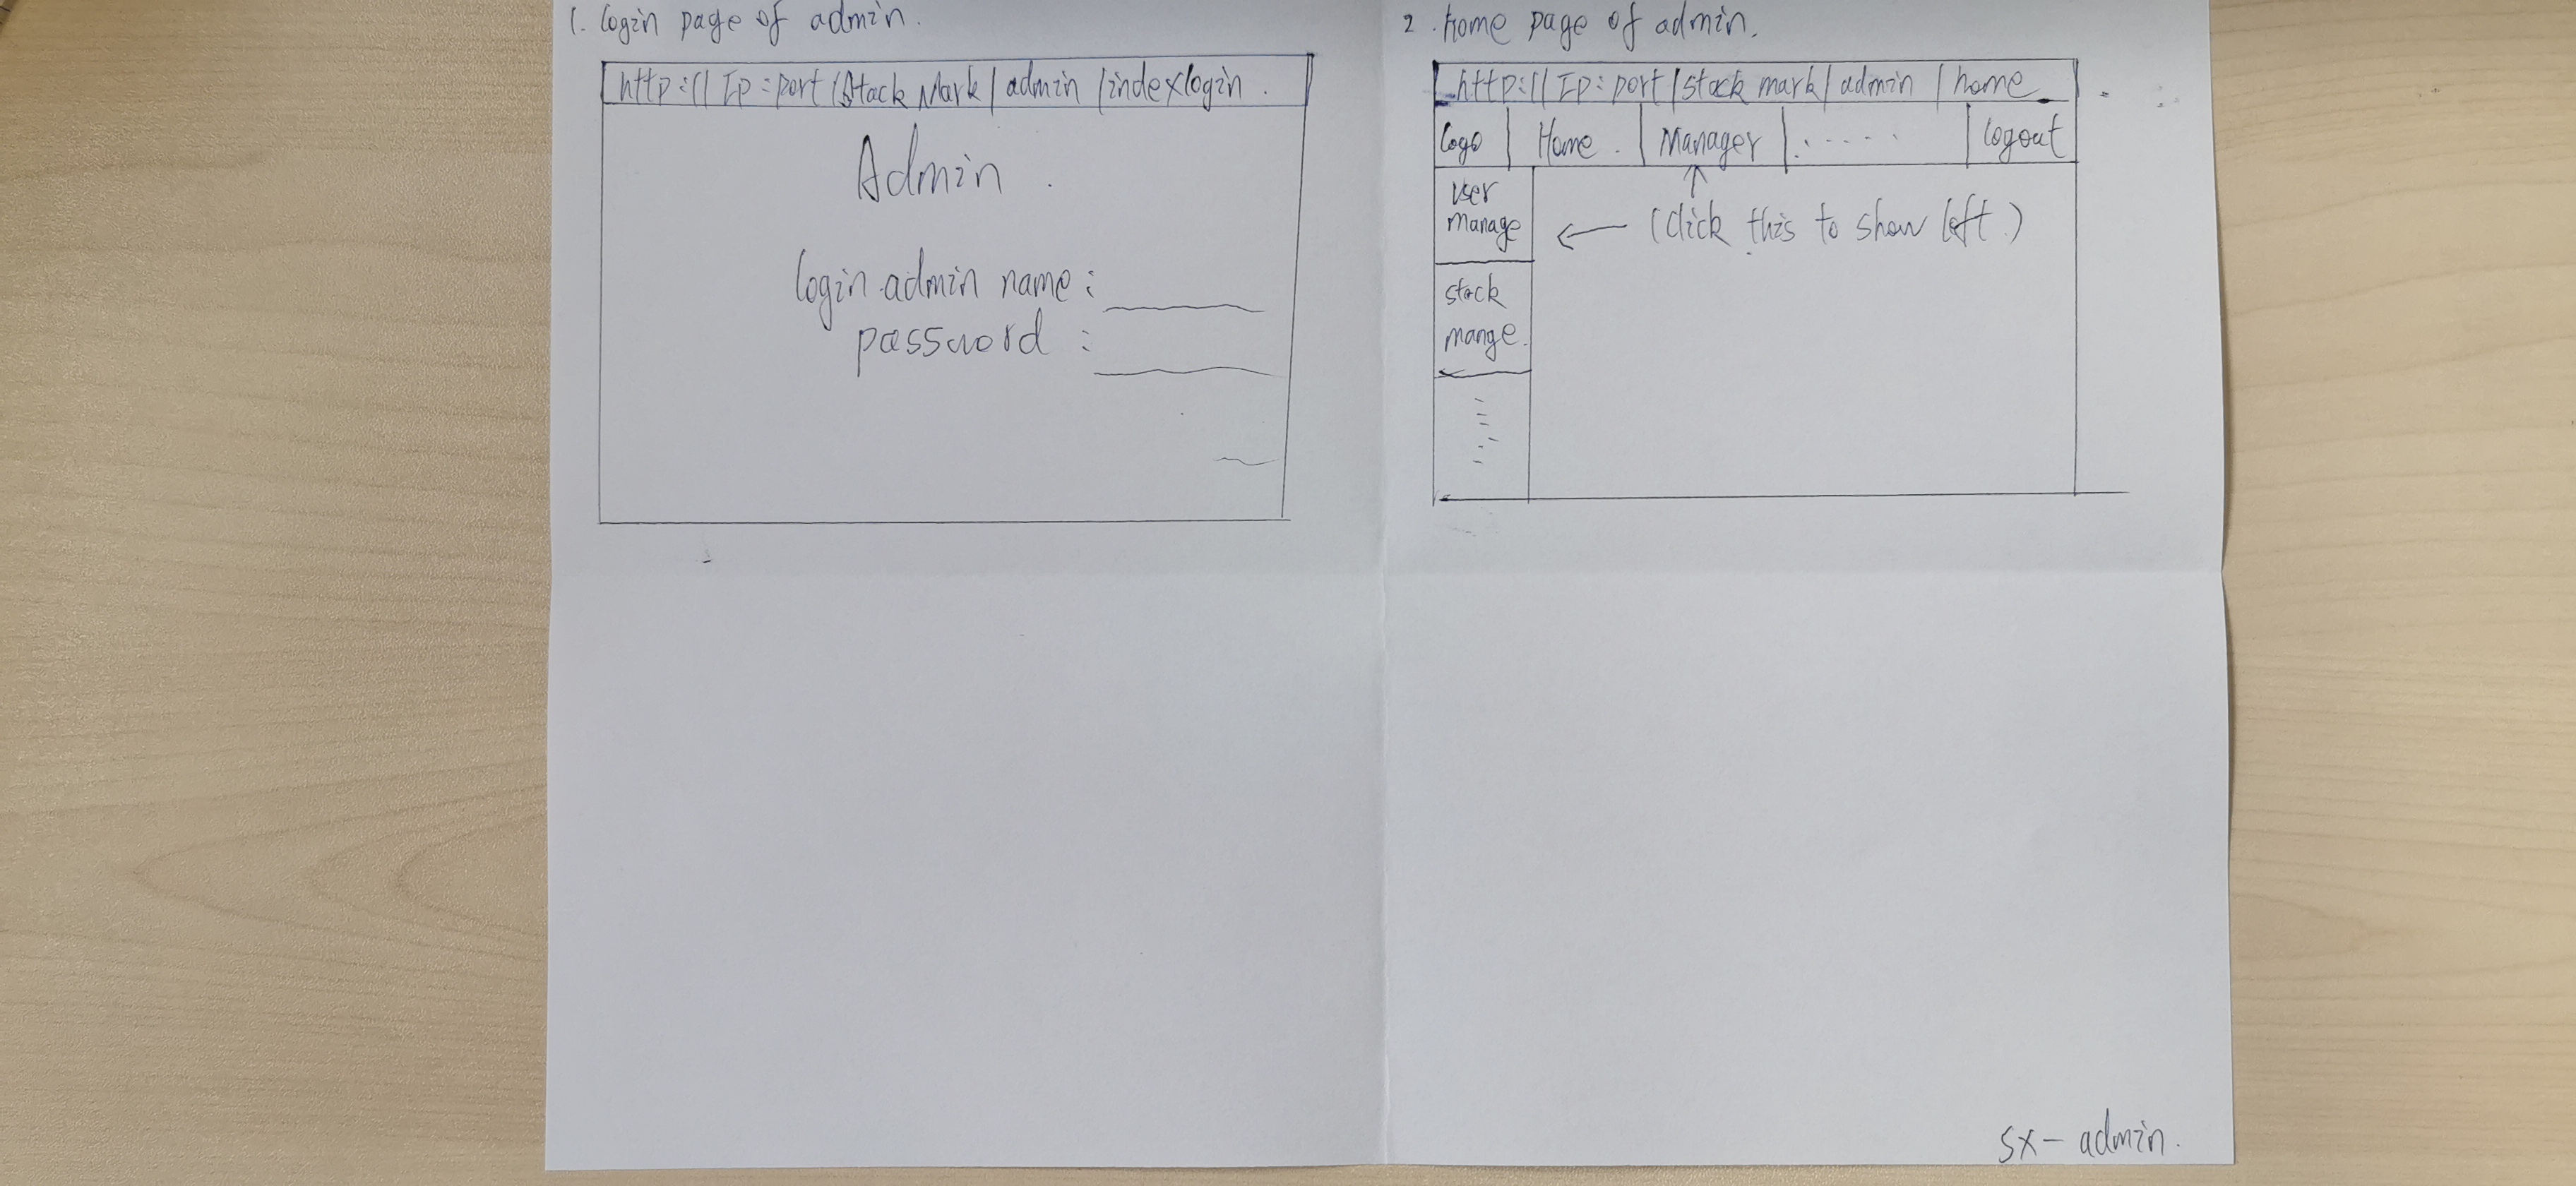 1. login page of admin.
http://Ip:port/Stack Mark/admin/indexlogin.
Admin.
login admin name:
password:
2. home page of admin.
http://Ip:port/stock mark/admin/home
logo Home. Manager ...... logout
User
Manage
(click this to show left.)
stock
mange.
sx-admin.